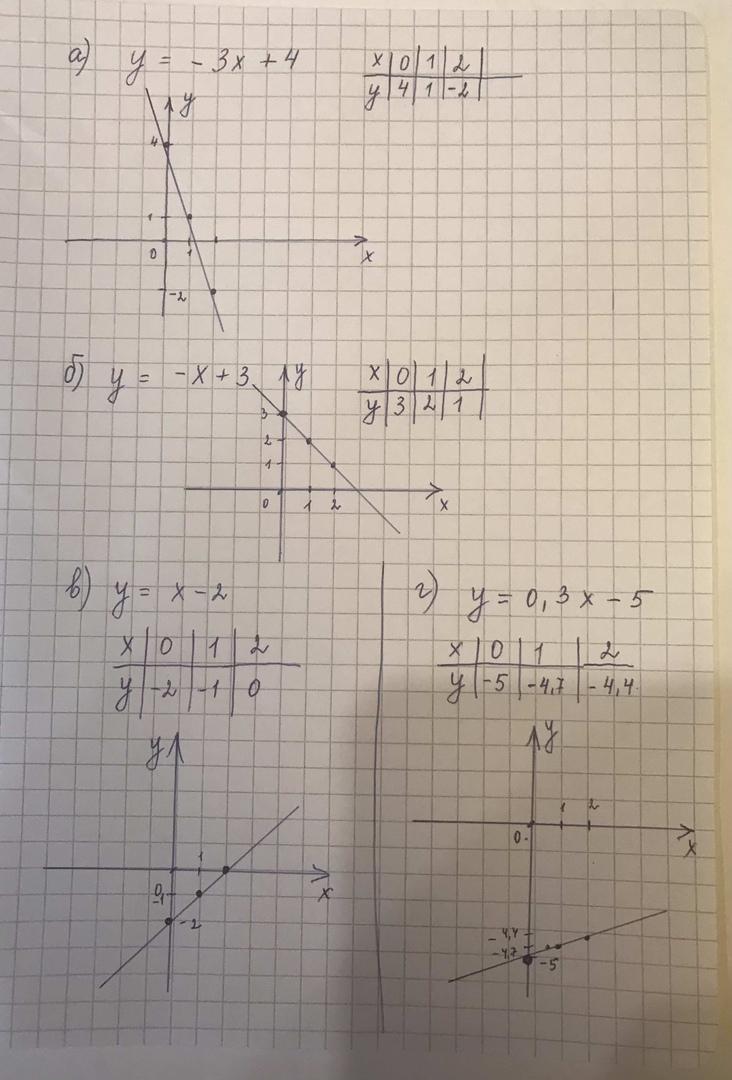 а) y = -3x + 4
x | 0 | 1 | 2 |
y | 4 | 1 | -2 |
y
4
1
0 1 x
-2
б) y = -x + 3
x | 0 | 1 | 2 |
y | 3 | 2 | 1 |
y
3
2
1
0 1 2 x
в) y = x - 2
x | 0 | 1 | 2
y | -2 | -1 | 0
y
1
0 x
-1
-2
г) y = 0,3x - 5
x | 0 | 1 | 2
y | -5 | -4,7 | -4,4
y
1 2
0 x
-4,4
-4,7
-5